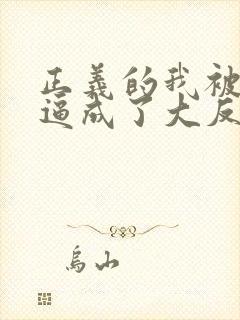 正义的我被
逼成了大反
乌山